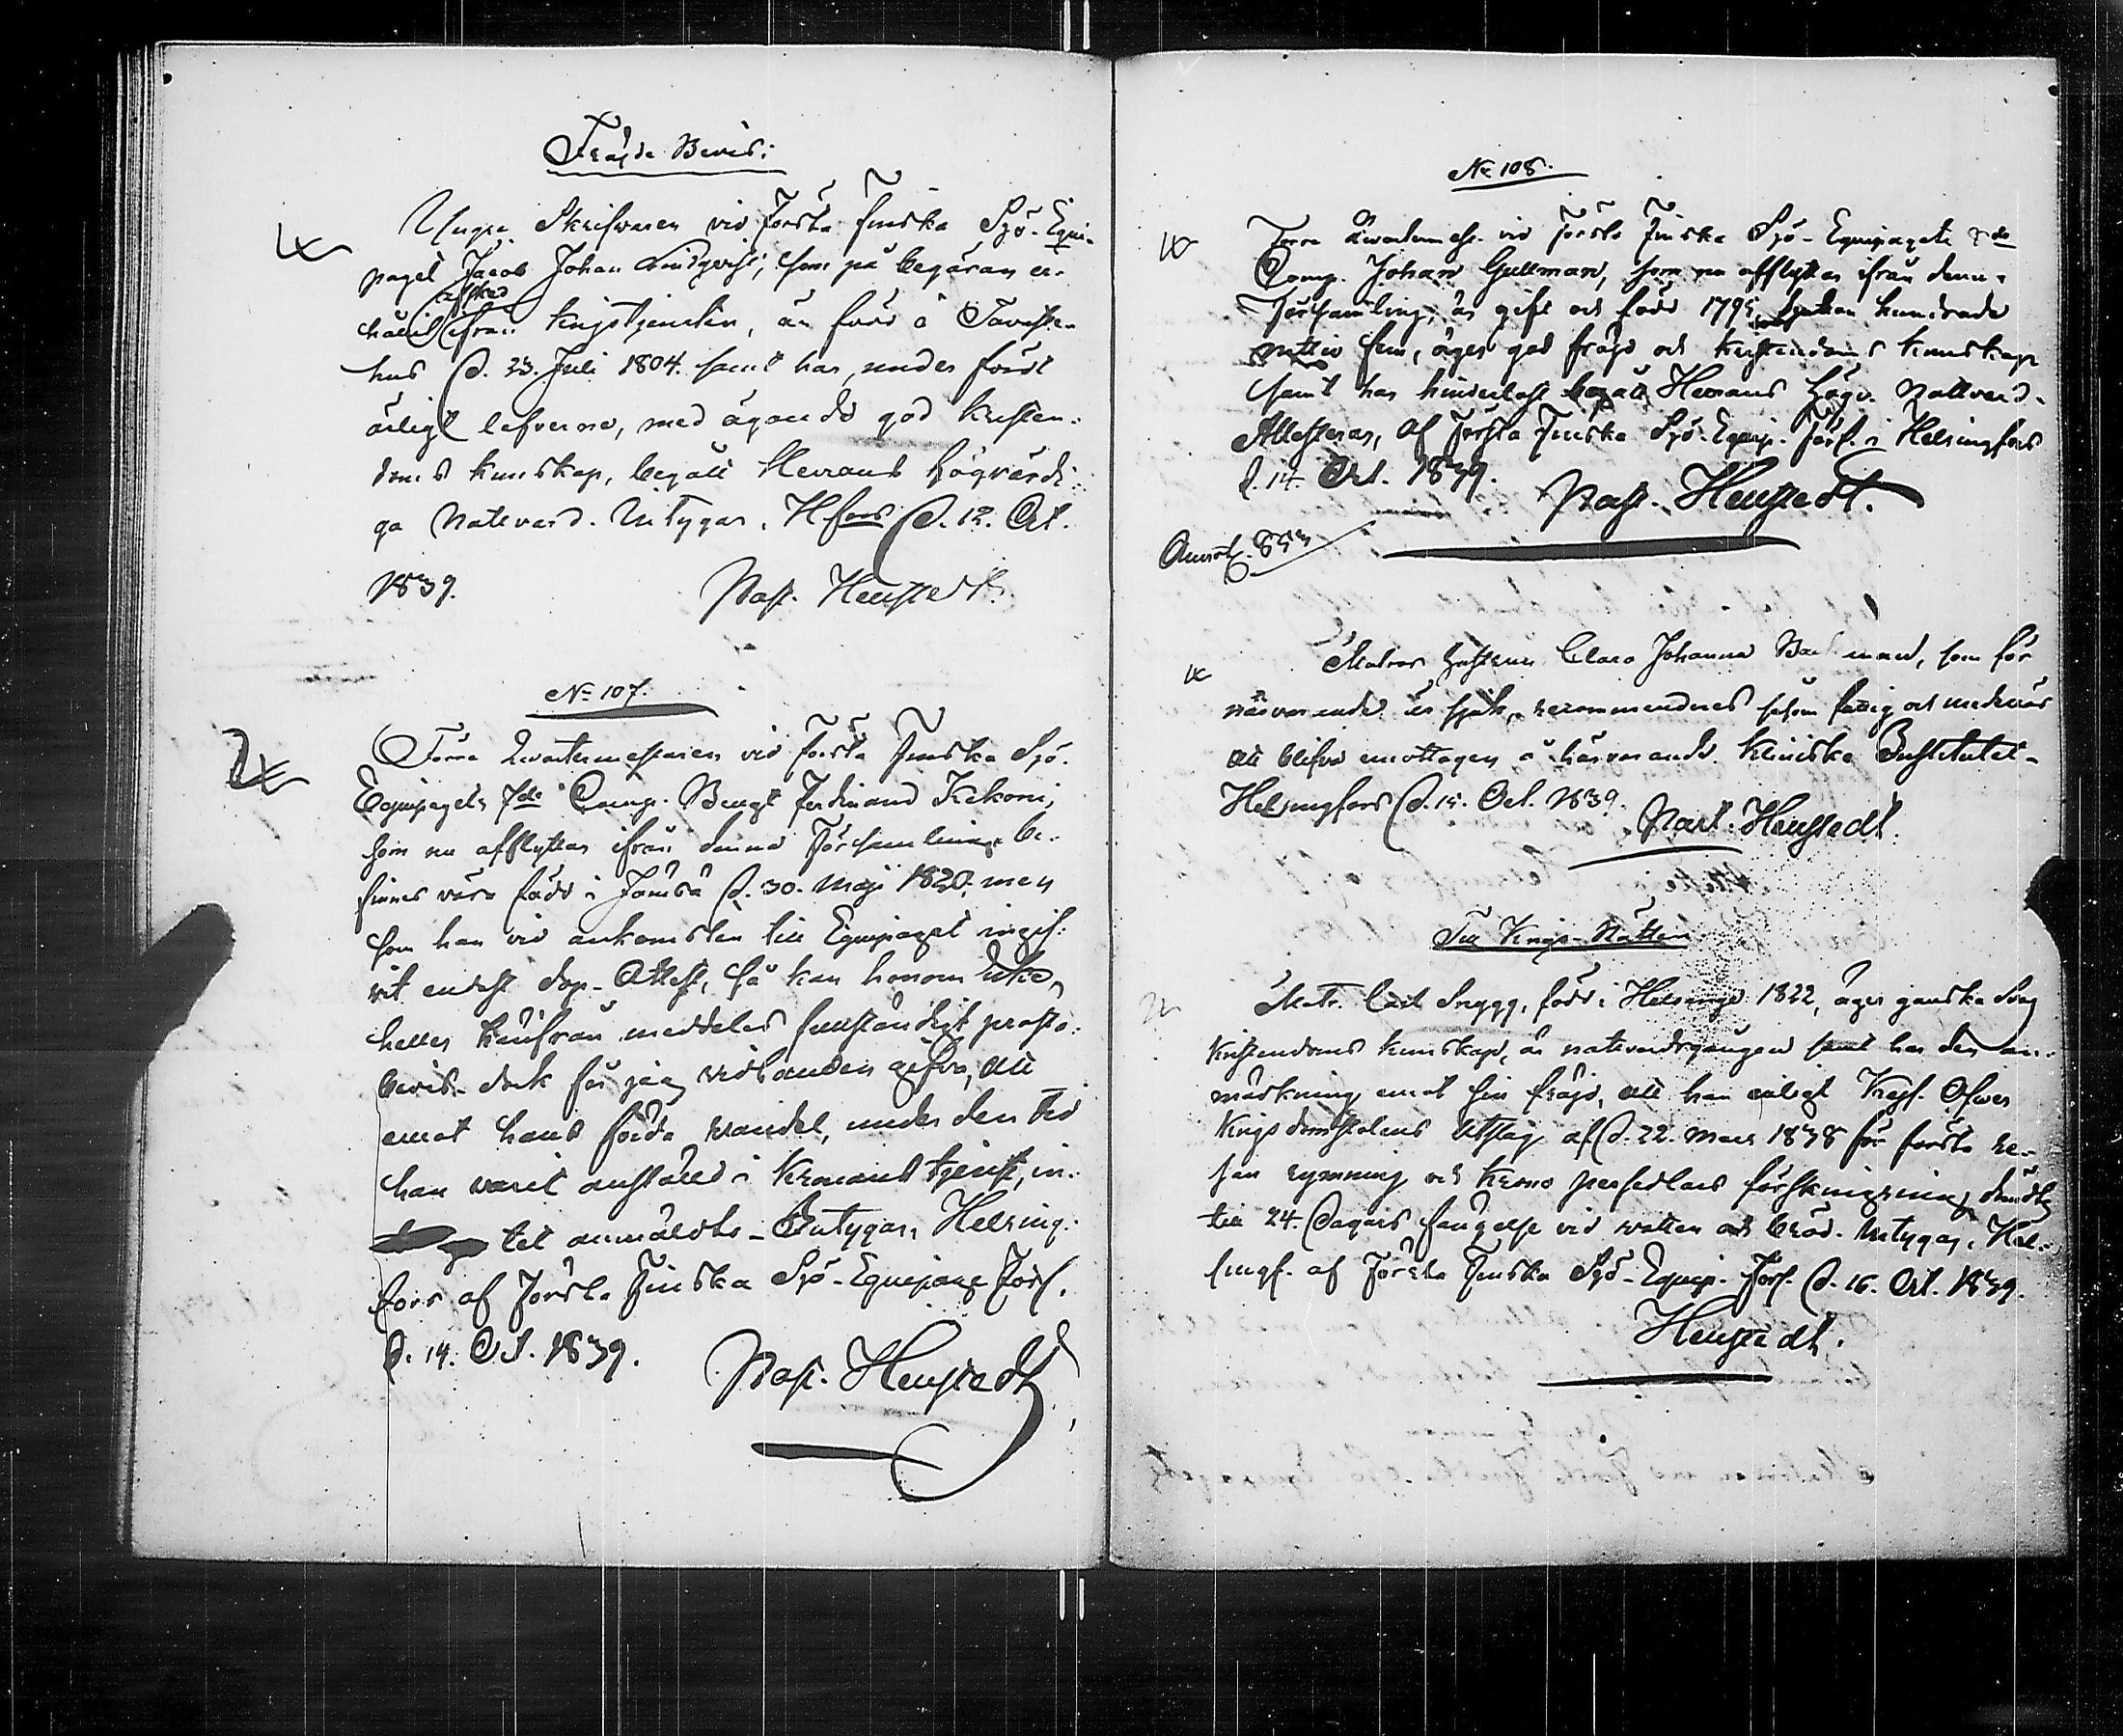 Frägde Bevis:
Yngre Skrifvaren vid Första Finska Sjö-Equi-
paget Jacob Johan Lindqvist, som på begäran er-
hållit afsked ifrån Krigstjensten, är född i Tavaste-
hus d. 23. Juli 1804. samt har, under fördt
ärligt lefverne, med ägande god kristen-
doms kunskap, begått Herrans Högvärdi-
ga Nattvard. Intygar. Hfors d. 12. Oct.
1839. Past. Henstedt.
No 107.
Förre Qvartermästaren vid Första Finska Sjö-
Equipagets 7de Comp. Bengt Ferdinand Kekoni,
som nu afflyttar ifrån denna Församling, be-
finnes vara född i Jämsä d. 30. Maji 1820. men
som han vid ankomsten till Equipaget ingif-
vit endast dop-Attest, så kan honom icke
heller härifrån meddelas fullständigt präste-
bevis. dock får jag vidhanden gifva, att
emot hans förda vandel, under den tid
han varit anställd i Kronans tjenst, in-
tet anmäldts - Intygar, Helsing-
fors af Första Finska Sjö-Equipage Förs.
d. 14. Oct. 1839. Past. Henstedt
No 108.
Förre Qvarterm. vid Första Finska Sjö-Equipagets 8de
Comp. Johan Gullman, som nu afflyttar ifrån denna
Församling, är gift och född 1795 sjutton hundrade
nittio fem, äger god frägd och kristendoms kunskap
samt har hinderlöst begått Herrans Högv. Nattvard.
Attesteras, af Första Finska Sjö-Equip. Förs. i Helsingfors
d. 14. Oct. 1839. Past. Henstedt.
Matros Hustrun Clara Johanna man, som för
närvarande är sjuk, recommenderas såsom fattig och medellös
att blifva emottagen å härvarande Kliniska Institutet -
Helsingfors d. 15. Oct. 1839. Past. Henstedt.
Till Krigs-Rätten
Matr. Carl Snygg, född i Helsinge 1822, äger ganska svag
kristendoms kunskap, är nattvardsgången samt har den an-
märkning emot sin frägd, att han enligt Krigs Öfver
Krigsdomstolens utslag af d. 22. Mars 1838 för första re-
san rymning och krono persedlars förskingring dömdts
till 24. Dagars fängelse vid vatten och bröd. Intygar, Hel-
singf. af Första Finska Sjö-Equip. Förs. d. 16. Oct. 1839.
Henstedt.